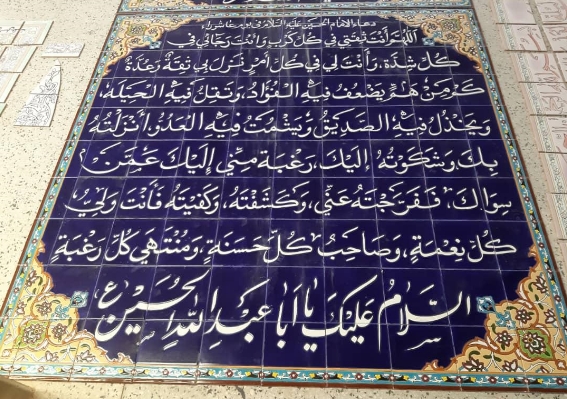 دعاء الامام الحسين عليه السلام في يوم عاشوراء
اَللّهُمَّ أَنْتَ ثِقَتي في كُلِّ كَرْبٍ وَأَنْتَ رَجَائي في
كُلِّ شِدَّةٍ، وَأَنْتَ لي في كُلِّ أَمْرٍ نَزَلَ بي ثِقَةٌ وَعُدَّةٌ
كَمْ مِنْ هَمٍّ يَضْعُفُ فيهِ الْفُؤَادُ، وَتَقِلُّ فيهِ الْحيلَةُ،
وَيَخْذُلُ فيهِ الصَّدِيقُ وَيَشْمَتُ فيهِ الْعَدُوُّ، أَنْزَلْتُهُ
بِكَ وَشَكَوْتُهُ إِلَيْكَ، رَغْبَةً مِنّي إِلَيْكَ عَمَّنْ
سِوَاكَ، فَفَرَّجْتَهُ عَنّي، وَكَشَفْتَهُ، وَكَفَيْتَهُ فَأَنْتَ وَلِيُّ
كُلِّ نِعْمَةٍ، وَصَاحِبُ كُلِّ حَسَنَةٍ، وَمُنْتَهى كُلِّ رَغْبَةٍ
اَلسَّلامُ عَلَيْكَ يَا أَبَا عَبْدِ اللهِ الْحُسَيْن ع